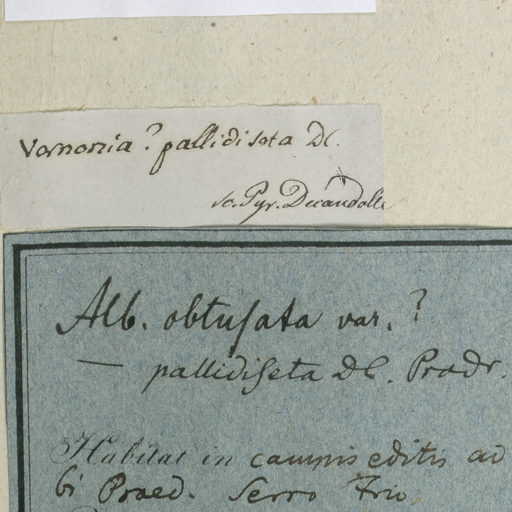 Vornonia? pallidiseta DC.
sc. Pyr. Decandolle
Alb. obtusata var.?
— pallidiseta DC. Prodr.
Habitat in campis editis ad
Praed. Serro Frio